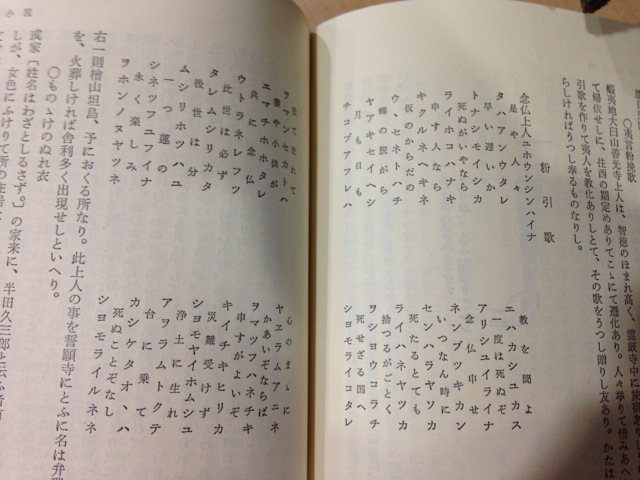 ○夷言粉挽歌
蝦夷地大臼山善光寺上人は、智徳のほまれ高く、霊巌寺中に旅宿ありし
て帰依せしに、往西の期定めありてこゝにて遷化あり。人々挙りて惜みあへ
引歌を作りて夷人を教化ありしとて、その歌をうつし贈りし友あり。かたは
らしければうつし奉るものなりし。
粉引歌
念仏上人ユホウンシンハイナ
教を聞よ
是や人々
エハカシユカス
タハアンウタレ
一度は死ぬぞ
早い遅いか
アリシユイライナ
トナシモイシカ
念仏申せ
死ぬがいやなら
ネンブツキカン
ライコハナキ
いつなん時に
申す人なら
センハラヤソカ
キクルネヘキネ
死たるとても
仮のからだの
ライハネヤツカ
ウ、セネトハチ
捨つるがごとく
蝉の脱がら
ヲシヨウコラチ
ヤアキセイヘシ
死せざる国へ
月も日も
シヨモライコタレ
チコプアフレハ
心のまゝに
ヲマンセカトハ
ヤヱラムアニネ
妻や小供が
かあいぞならば
エマチホホタレ
ヲマツフハネチキ
共に念仏
申すがよいぞ
ウトラネレフツ
キイチキヒリカ
此世は必ず
災難受けず
タレムシリカタ
シヨモヤイホムシユ
後世は分
浄土に生れ
ムシリホツハユ
アヲラムトクテ
一つ蓮の
台に乗て
シネツフユフイナ
カシケタオ、ハ
永く楽しみ
死ぬことぞなし
ヲホンホノヌヤツネ
シヨモライルネネ
右一則檜山坦島、予におくる所なり。此上人の事を誓願寺にとふに名は弁瑞
を、火葬しければ舎利多く出現せしといへり。
○もゝけのぬれ衣
或家〔姓名はわざとしるさず。〕の家来に、半田久三郎と云ふ者有
しが、女色にふけりて所の